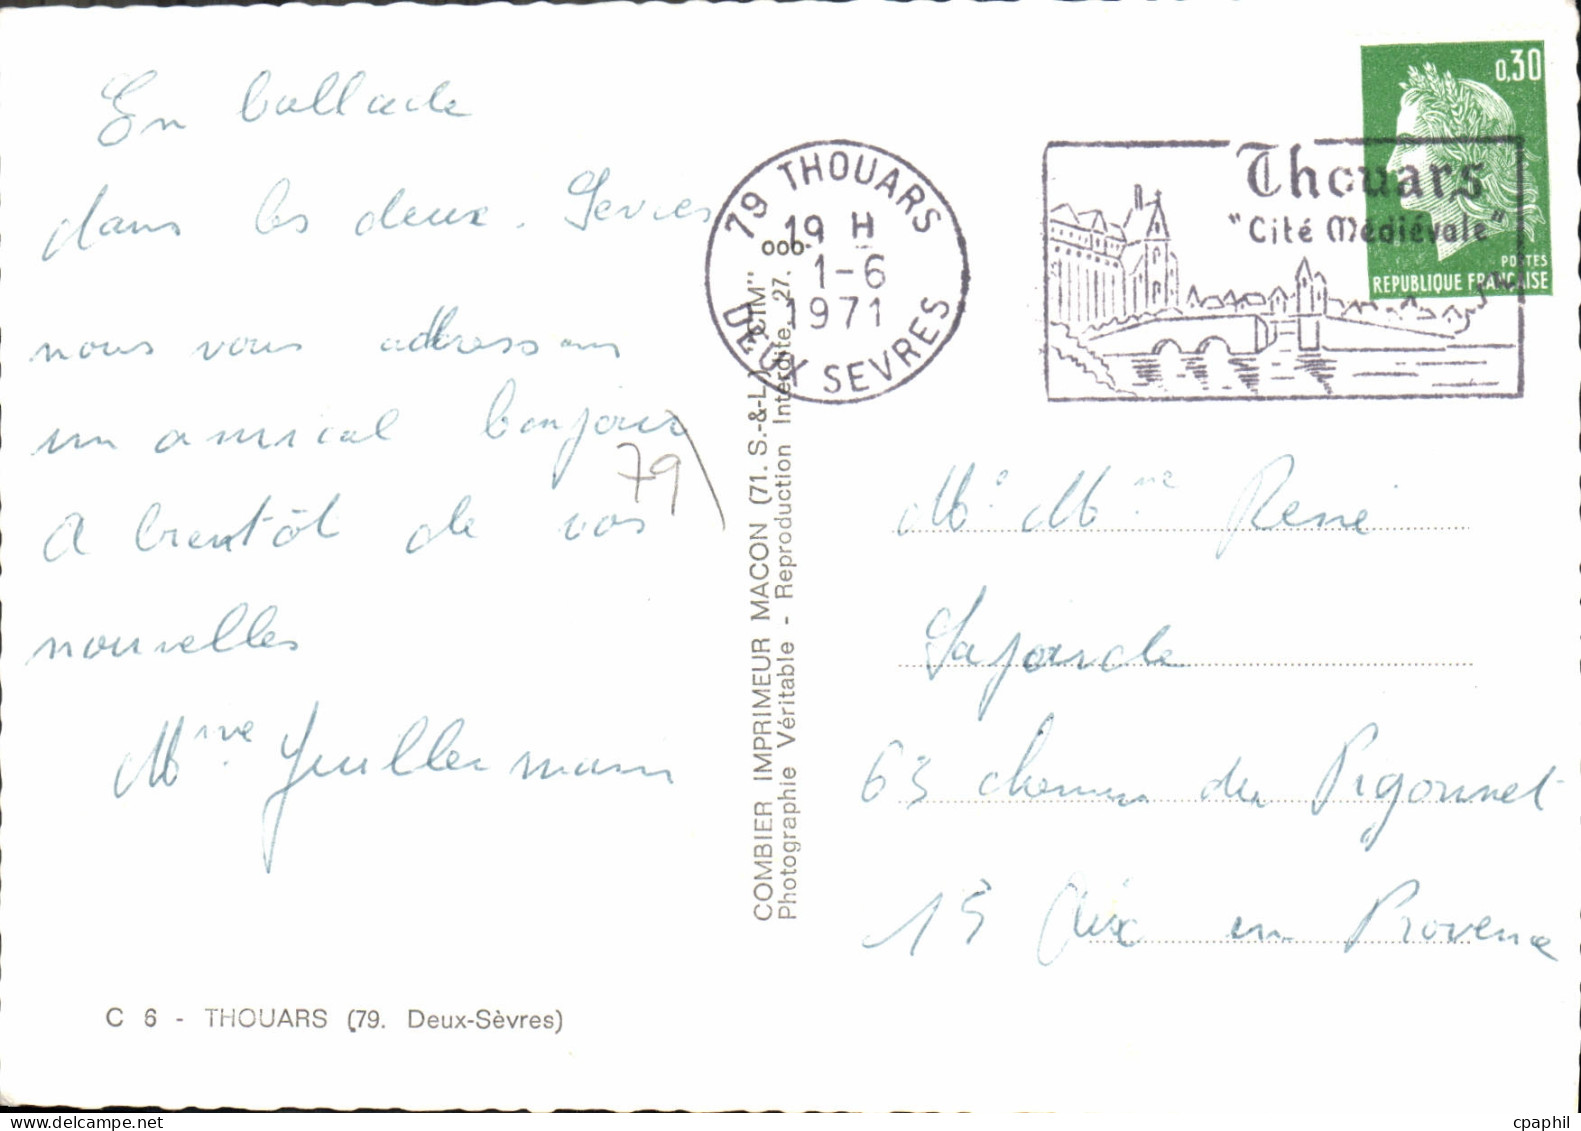 En ballade
dans les deux. Sèvres
nous vous adressons
un amical bonjour
79
A bientôt de vos
nouvelles
Mme Guillermain
C 6 - THOUARS (79. Deux-Sèvres)
COMBIER IMPRIMEUR MACON (71. S.-&-L.) "CIM"
Photographie Véritable - Reproduction Interdite
79 THOUARS
19 H
1-6
1971
DEUX SEVRES
Thouars
"Cité Médiévale"
0,30
POSTES
REPUBLIQUE FRANÇAISE
Mr Mme René
Lajarde
63 chemin du Pigonnet
13 Aix en Provence
cpaphil